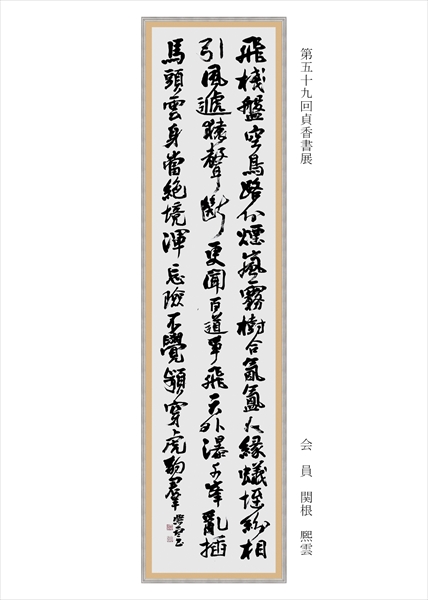 第五十九回貞香書展
会員 関根 熙雲
飛棧盤空鳥路分煙嵐霧樹合氤氳人緣蟻垤紛相
引風遞猿聲斷更聞百道爭飛天外瀑千峯亂插
馬頭雲身當絶境渾忘險不覺頻穿虎豹羣